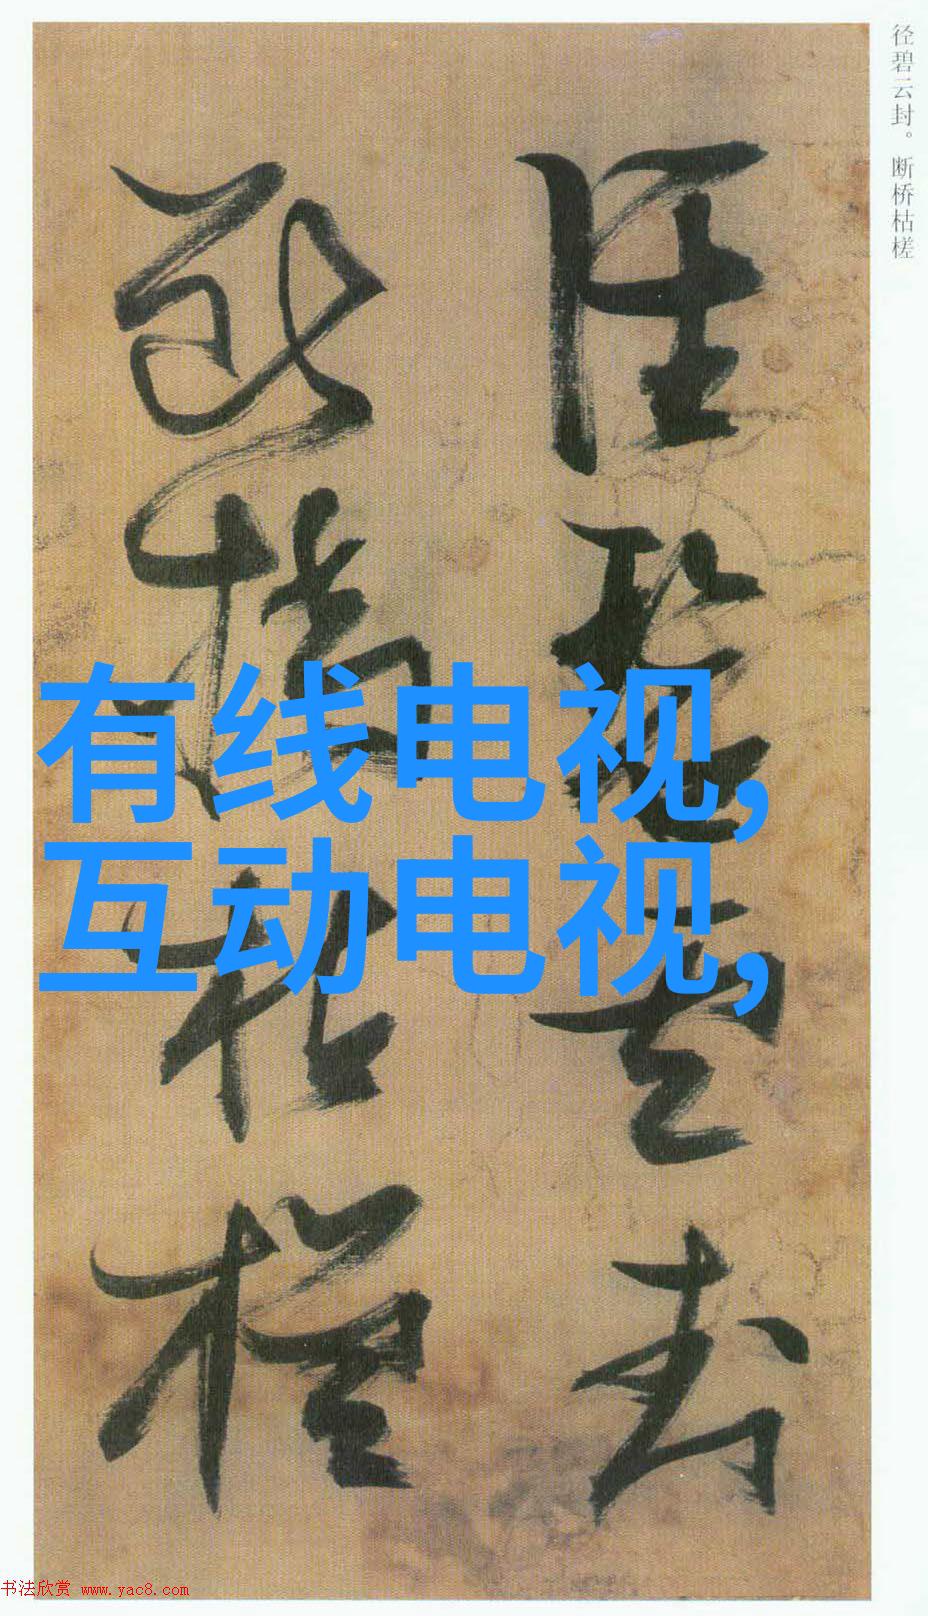 径碧云封。断桥枯槎
径碧云封
断桥枯槎
有线电视,
互动电视,
书法欣赏 www.yac8.com